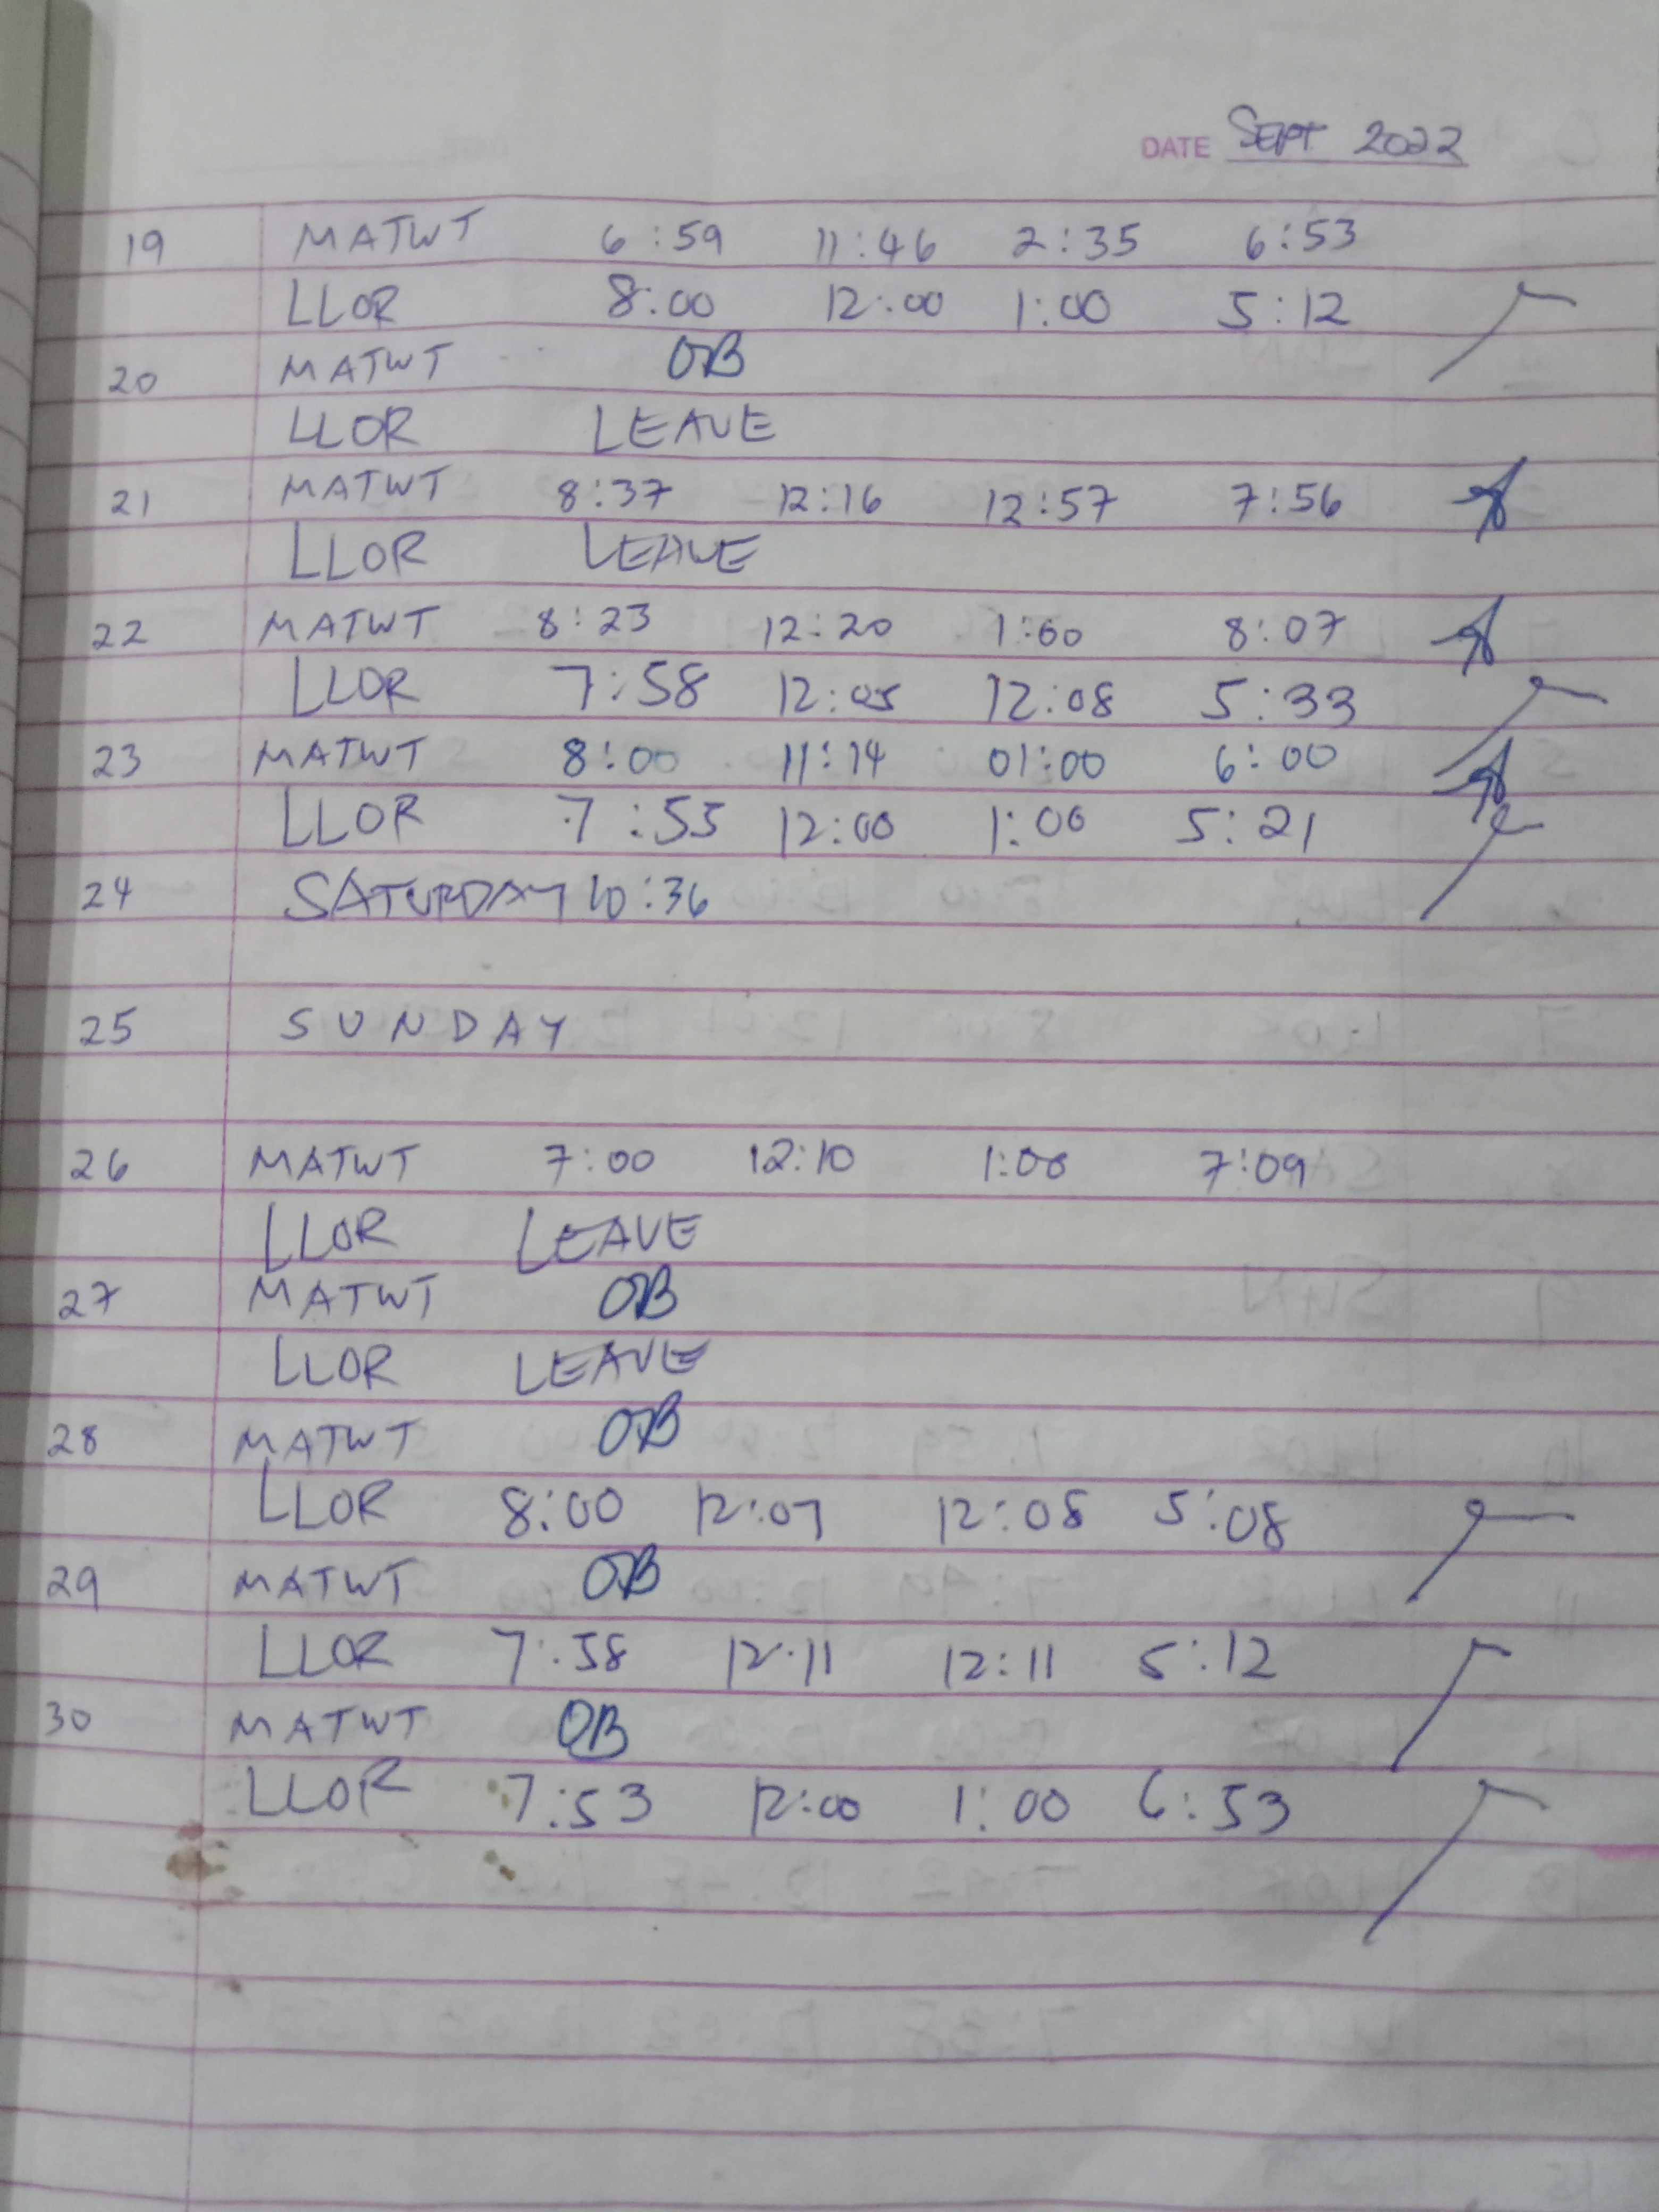 DATE SEPT 2022
19 MATWT 6:59 11:46 2:35 6:53
LLOR 8:00 12:00 1:00 5:12
20 MATWT OB
LLOR LEAVE
21 MATWT 8:37 12:16 12:57 7:56
LLOR LEAVE
22 MATWT 8:23 12:20 1:00 8:07
LLOR 7:58 12:05 12:08 5:33
23 MATWT 8:00 11:14 01:00 6:00
LLOR 7:53 12:00 1:00 5:21
24 SATURDAY 10:36
25 SUNDAY
26 MATWT 7:00 12:10 1:00 7:09
LLOR LEAVE
27 MATWT OB
LLOR LEAVE
28 MATWT OB
LLOR 8:00 12:07 12:08 5:08
29 MATWT OB
LLOR 7:58 12:11 12:11 5:12
30 MATWT OB
LLOR 7:53 12:00 1:00 6:53